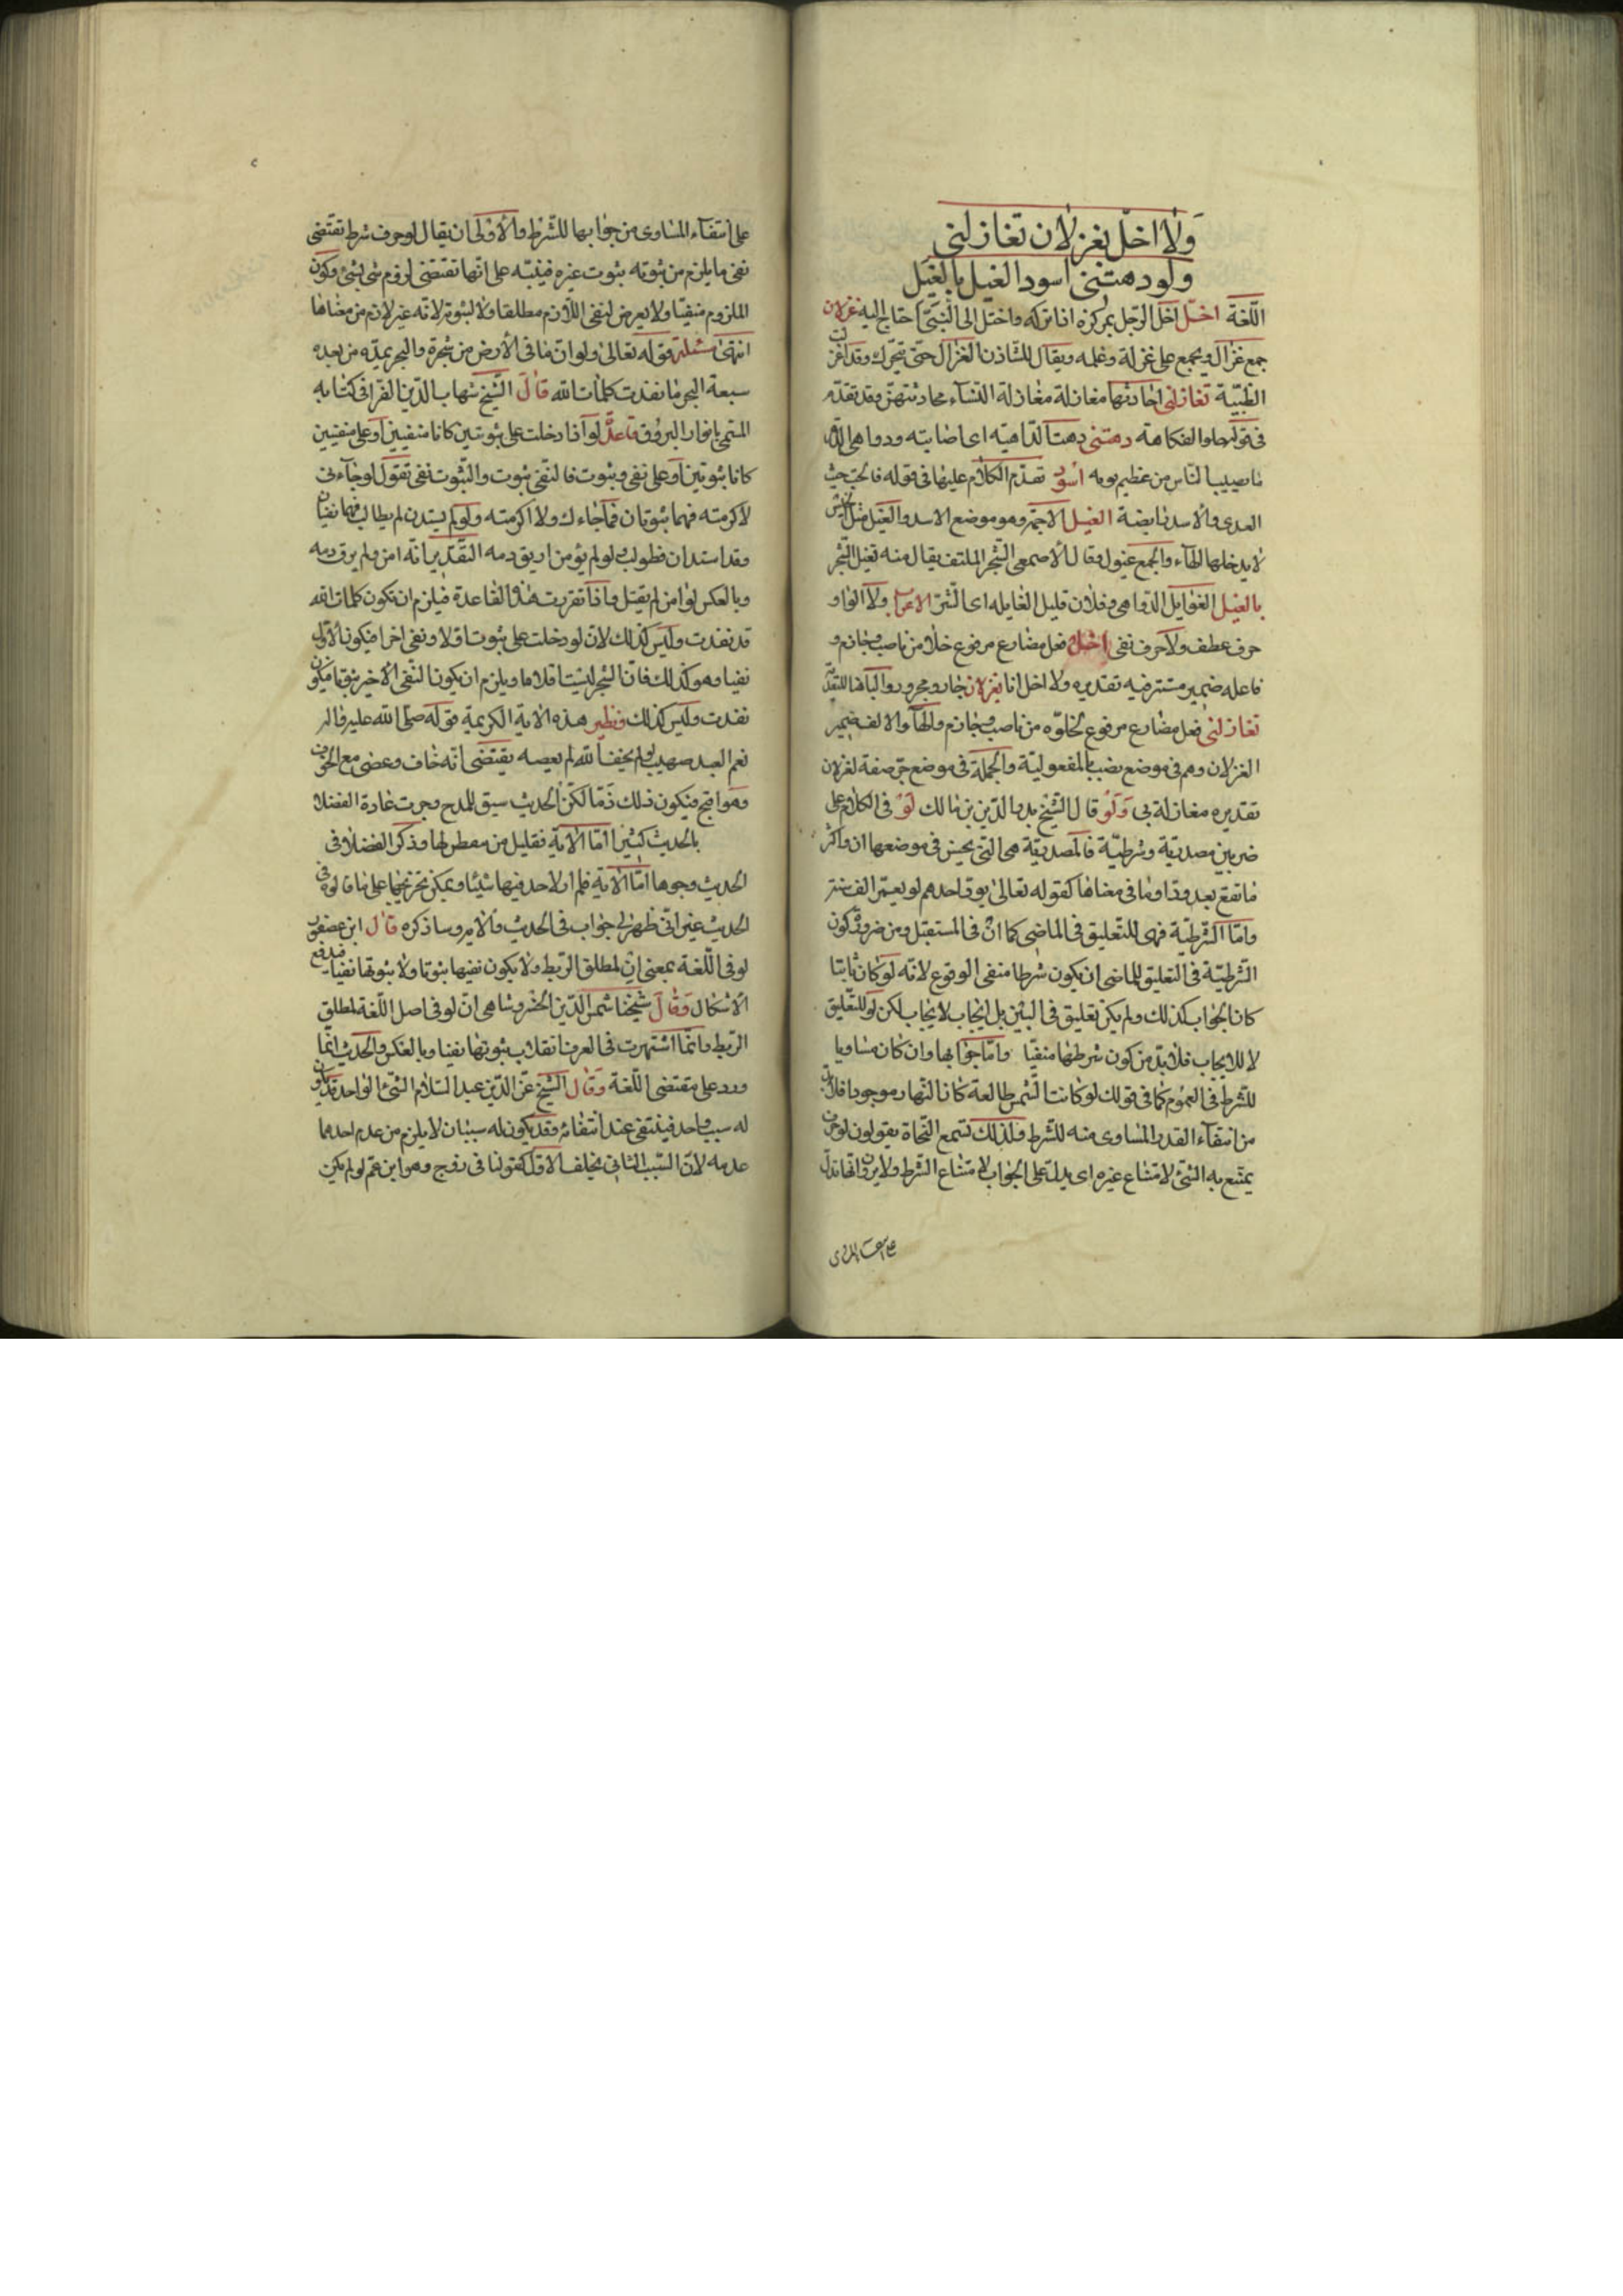 ولا اخلّ بغزلان تغازلنى
ولو دهتنى اسود الغيل بالغيل
اللّغة اخلّ اخل الرّجل بمركزه اذا تركه واختلّ الى الشىء احتاج اليه غزلان
جمع غزال ويجمع على غزلة وغلمه ويقال للشّادن الغزال حتّى يتحرّك وقد اغزلت
الظّبية تغازلنى احادثها مغازلة مغازلة النّساء محادثتهنّ وقد تقدّم
فى قوله حلو الفكاهة دهتنى دهت الدّاهية اى اصابته ودواهى الدّهر
ما يصيب النّاس من عظيم نوبه اسود تقدّم الكلام عليها فى قوله فالحبّ حيث
العدى والاسد رابضة الغيل الاجمة وهو موضع الاسد والغيل مثل خيس
لا يدخلها الهاء والجمع غيول وقال الاصمعى الشّجر الملتف يقال منه تغيل الشّجر
بالغيل الغوايل الدّواهى وفلان قليل الغايله اى الشّرّ الاعراب ولا الواو
حرف عطف ولا حرف نفى اخلّ فعل مضارع مرفوع خلا من ناصب وجازم و
فاعله ضمير مستتر فيه تقديره ولا اخل انا بغزلان جار ومجرور والباء هنا للتعدية
تغازلنى فعل مضارع مرفوع لخلوّه من ناصب وجازم والهاء والالف ضمير
الغزلان وهم فى موضع نصب بالمفعولية والجملة فى موضع جرّ صفة لغزلان
تقديره مغازلة بى وَلَوْ قال الشّيخ بدر الدّين بن مالك لَوْ فى الكلام على
ضربين مصدرية وشرطيّة فالمصدريّة هى التى يحسن فى موضعها ان واكثر
ما تقع بعد ودّ او ما فى معناها كقوله تعالى يودّ احدهم لو يعمّر الف سنة
وامّا الشّرطيّة فهى للتّعليق فى الماضى كما انّ فى المستقبل ومن ضرورة كون
الشّرطيّة فى التعليق للماضى ان يكون شرطها منفى الوقوع لانّه لو كان ثابتا
كان الجواب كذلك ولم يكن تعليق فى البين بل ايجاب لايجاب لكن لو للتّعليق
لا للايجاب فلا بدّ من كون شرطها منفيّا وامّا جوابها وان كان مساويا
للشّرط فى العموم كما فى قولك لو كانت الشّمس طالعة كان النّهار موجودا فلا بدّ
من انتفاء القدر المساوى منه للشّرط ولذلك تسمع النّحاة يقولون لو حرف
يمتنع به الشّىء لامتناع غيره اى يدلّ على الجواب لامتناع الشّرط ولا يريدون انّها تدلّ
على انتفاء المساوى من جوابها للشّرط والاولى ان يقال لو حرف شرط تقتضى
نفى ما يلزم من ثبوته ثبوت غيره فينبّه على انّها تقتضى لزوم شى بشىء وكون
الملزوم منفيّا ولا يعرض لنفى اللّازم مطلقا ولا لثبوته لانّه غير لازم من معناها
انتهى مسئلة قوله تعالى ولو انّ ما فى الارض من شجرة والبحر يمدّه من بعده
سبعة ابحر ما نفدت كلمات الله قالَ الشّيخ شهاب الدّين القرافى كتابه
المسمى بانوار البروق قاعدة لو اذا دخلت على ثبوتين كانا منفيين او على منفيين
كانا ثبوتين او على نفى وثبوت فالنّفى ثبوت والثّبوت نفى تقول لو جاءنى
لاكرمته فهما ثبوتان فما جاءك ولا اكرمته ولو لم يستدن لم يطالب فهما نفيان
وقد استدان فطولب ولو لم يؤمن اريق دمه التّقدير انّه امن ولم يرق دمه
وبالعكس لو امن لم يقتل واذا تقرّرت هذه القاعدة فيلزم ان تكون كلمات الله
قد نفدت وليس كذلك لانّ لو دخلت على ثبوت اوّلا ونفى اخرا فيكون الاوّل
نفيا وهو كذلك فانّ الشّجر ليست اقلاما ويلزم ان يكون النّفى الاخير ثبوتا فيكون
نفدت وليس كذلك ونظير هذه الاية الكريمة قوله صلّى الله عليه واله
نعم العبد صهيب لو لم يخف الله لم يعصه يقتضى انّه خاف وعصى مع الخوف
وهو اقبح فيكون ذلك ذمّا لكنّ الحديث سيق للمدح وجرت عادة الفضلا
بالحديث كثيرا امّا الاية فقليل من يفطن لها وذكر الفضلا فى
الحديث وجوها امّا الاية فلم ار لاحد فيها شيئا ويمكن تخريجها على ما قالوه فى
الحديث غير انّى ظهر لى جواب فى الحديث والاية وساذكره قال ابن عصفور
لو فى اللّغة بمعنى ان لمطلق الرّبط ولا يكون نفيها ثبوتا ولا ثبوتها نفيا فيندفع
الاشكال وَقالَ شيخنا شمس الدّين الخسروشاهى انّ لو فى اصل اللّغة لمطلق
الرّبط وانّما اشتهرت فى العرف انقلاب ثبوتها نفيا وبالعكس والحديث انّما
ورد على مقتضى اللّغة وَقالَ الشّيخ عزّ الدّين عبد السّلام الشّىء الواحد قد يكون
له سبب واحد فينتفى عند انتفائه وقد يكون له سببان لا يلزم من عدم احدهما
عدمه لانّ السّبب الثانى يخلف الاوّل كقولنا فى زوج وهو ابن عمّ لو لم يكن